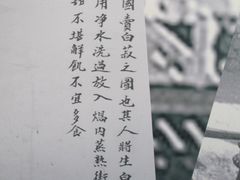 國賣白菽之圖也其人將生白
用净水洗過放入煱内蒸熟街
不堪解飢不宜多食